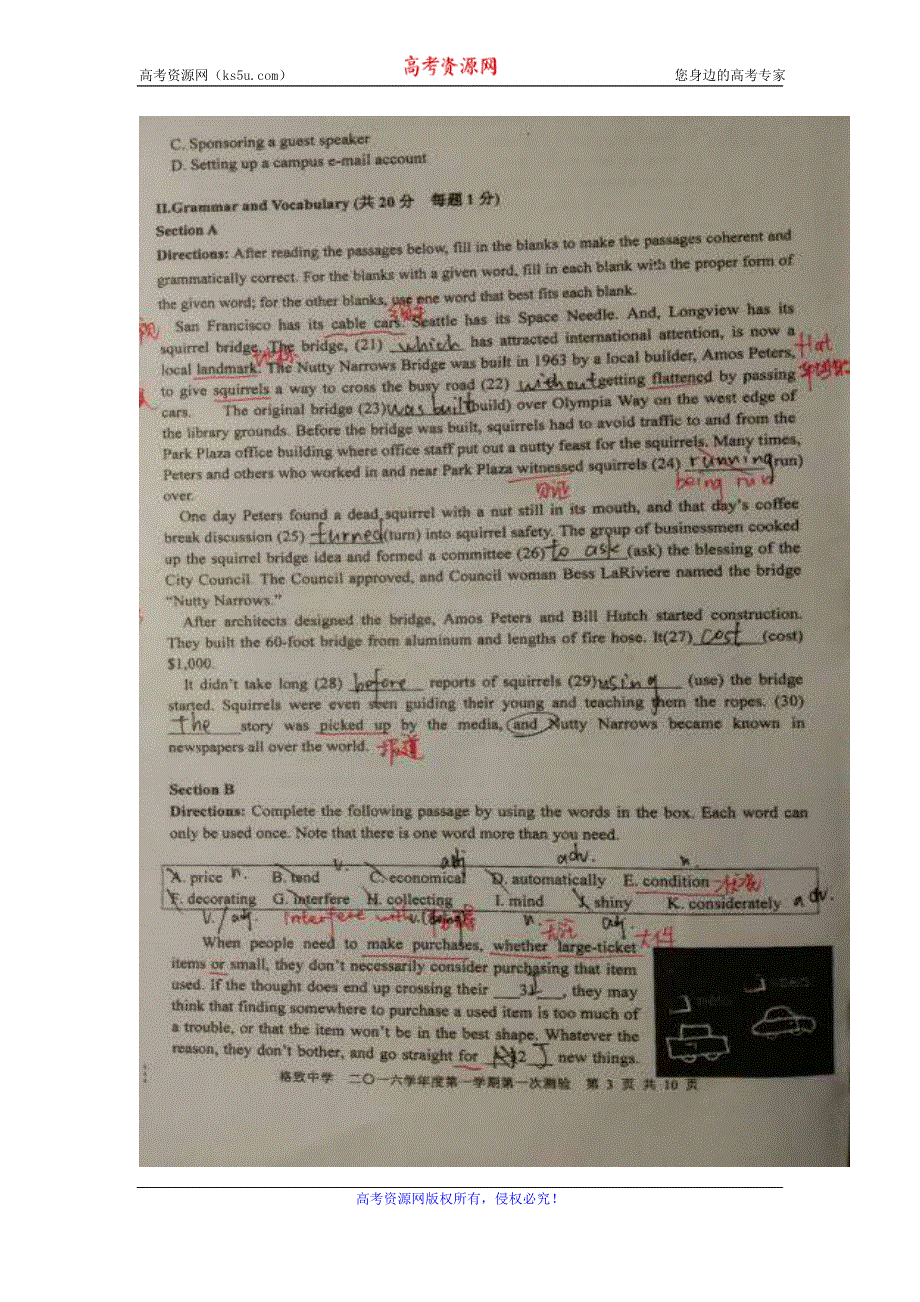 高考资源网(ks5u.com)
高考资源网
您身边的高考专家
C. Sponsoring a guest speaker
D. Setting up a campus e-mail account
II.Grammar and Vocabulary (共 20 分 每题 1 分)
Section A
Directions: After reading the passages below, fill in the blanks to make the passages coherent and
grammatically correct. For the blanks with a given word, fill in each blank with the proper form of
the given word; for the other blanks, use one word that best fits each blank.
San Francisco has its cable cars. Seattle has its Space Needle. And, Longview has its
squirrel bridge. The bridge, (21) which has attracted international attention, is now a
local landmark. The Nutty Narrows Bridge was built in 1963 by a local builder, Amos Peters,
地标
flat
to give squirrels a way to cross the busy road (22) without getting flattened by passing
cars. The original bridge (23) was built (build) over Olympia Way on the west edge of
the library grounds. Before the bridge was built, squirrels had to avoid traffic to and from the
Park Plaza office building where office staff put out a nutty feast for the squirrels. Many times,
Peters and others who worked in and near Park Plaza witnessed squirrels (24) running (run)
目证 being run
over.
One day Peters found a dead squirrel with a nut still in its mouth, and that day's coffee
break discussion (25) turned (turn) into squirrel safety. The group of businessmen cooked
up the squirrel bridge idea and formed a committee (26) to ask (ask) the blessing of the
City Council. The Council approved, and Council woman Bess LaRiviere named the bridge
“Nutty Narrows.”
After architects designed the bridge, Amos Peters and Bill Hutch started construction.
They built the 60-foot bridge from aluminum and lengths of fire hose. It(27) cost (cost)
$1,000.
It didn't take long (28) before reports of squirrels (29) using (use) the bridge
started. Squirrels were even seen guiding their young and teaching them the ropes. (30)
The story was picked up by the media, and Nutty Narrows became known in
newspapers all over the world. 报道
Section B
Directions: Complete the following passage by using the words in the box. Each word can
only be used once. Note that there is one word more than you need.
v. adj adv. n.
A. price n. B. tend C. economical D. automatically E. condition
F. decorating G. Interfere H. collecting I. mind J. shiny K. considerately adv.
v./adj. Interfere with n. adj.
When people need to make purchases, whether large-ticket 大件
items or small, they don't necessarily consider purchasing that item
used. If the thought does end up crossing their 31, they may
think that finding somewhere to purchase a used item is too much of
a trouble, or that the item won't be in the best shape. Whatever the
reason, they don't bother, and go straight for 32 J new things.
格致中学 二〇一六学年度第一学期第一次测验 第 3 页 共 10 页
高考资源网版权所有，侵权必究！